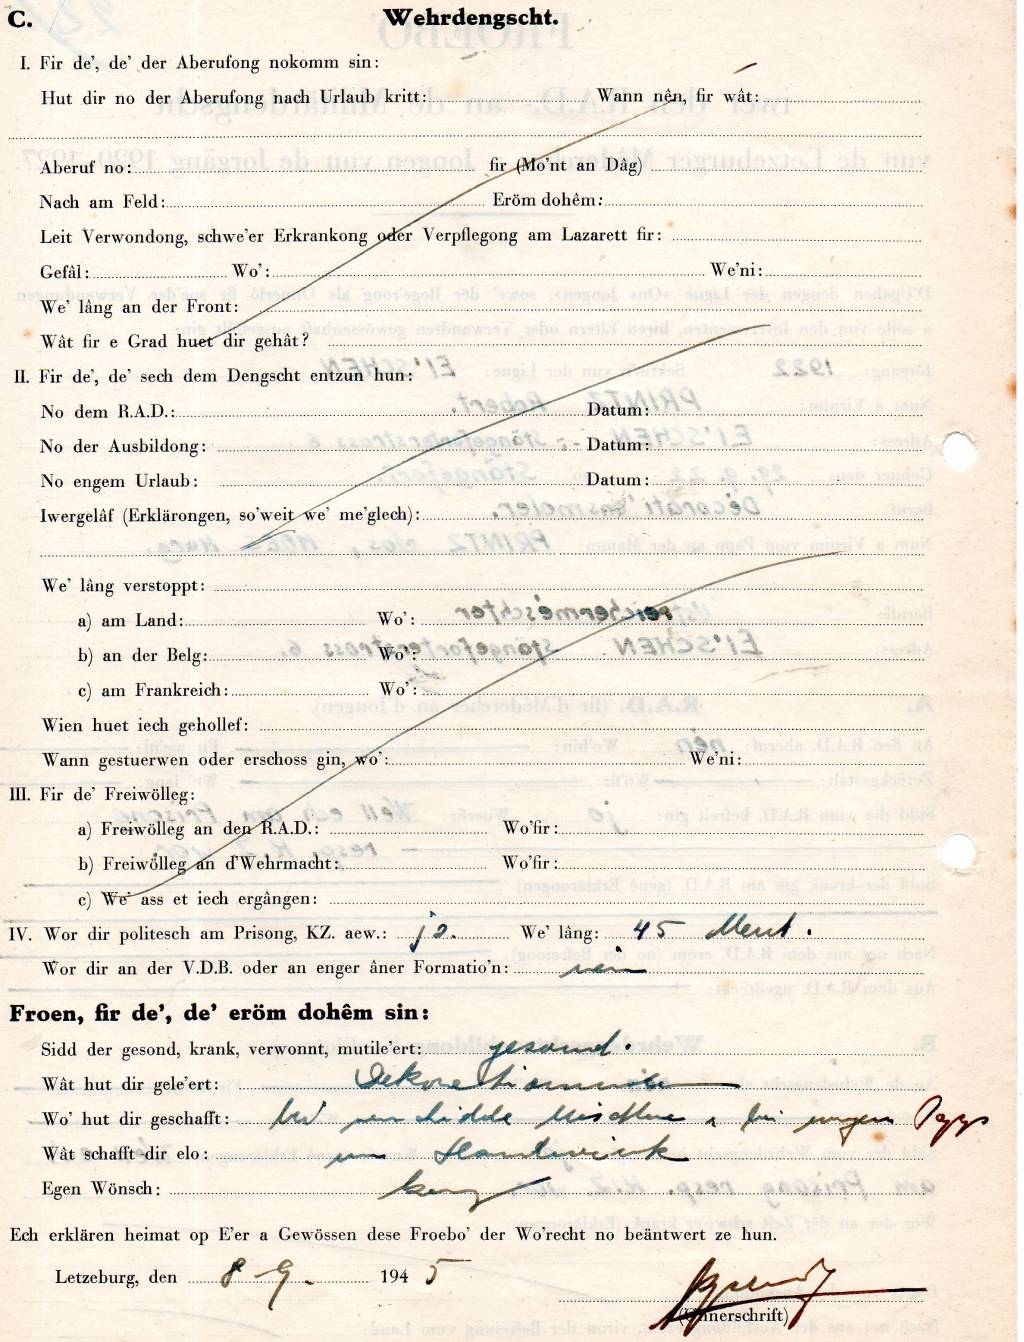 C. Wehrdengscht.
I. Fir de', de' der Aberufong nokomm sin:
Hut dir no der Aberufong nach Urlaub kritt: Wann nên, fir wât:
Aberuf no: fir (Mo'nt an Dâg)
Nach am Feld: Eröm dohêm:
Leit Verwondong, schwe'er Erkrankong oder Verpflegong am Lazarett fir:
Gefâl: Wo': We'ni:
We' lâng an der Front:
Wât fir e Grad huet dir gehât?
II. Fir de', de' sech dem Dengscht entzun hun:
No dem R.A.D.: Datum:
No der Ausbildong: Datum:
No engem Urlaub: Datum:
Iwergelâf (Erklärongen, so'weit we' me'glech):
We' lâng verstoppt:
a) am Land: Wo':
b) an der Belg: Wo':
c) am Frankreich: Wo':
Wien huet iech gehollef:
Wann gestuerwen oder erschoss gin, wo': We'ni:
III. Fir de' Freiwölleg:
a) Freiwölleg an den R.A.D.: Wo'fir:
b) Freiwölleg an d'Wehrmacht: Wo'fir:
c) We' ass et iech ergângen:
IV. Wor dir politesch am Prisong, KZ. aew.: jo. We' lâng: 45 Ment.
Wor dir an der V.D.B. oder an enger âner Formatio'n: nein
Froen, fir de', de' eröm dohêm sin:
Sidd der gesond, krank, verwonnt, mutile'ert: gesond.
Wât hut dir gele'ert:
Wo' hut dir geschafft: Pappa
Wât schafft dir elo: um Handwierk
Egen Wönsch:
Ech erklären heimat op E'er a Gewössen dese Froebo' der Wo'recht no beäntwert ze hun.
Letzeburg, den 8 - 9. 1945
(Önnerschrift)